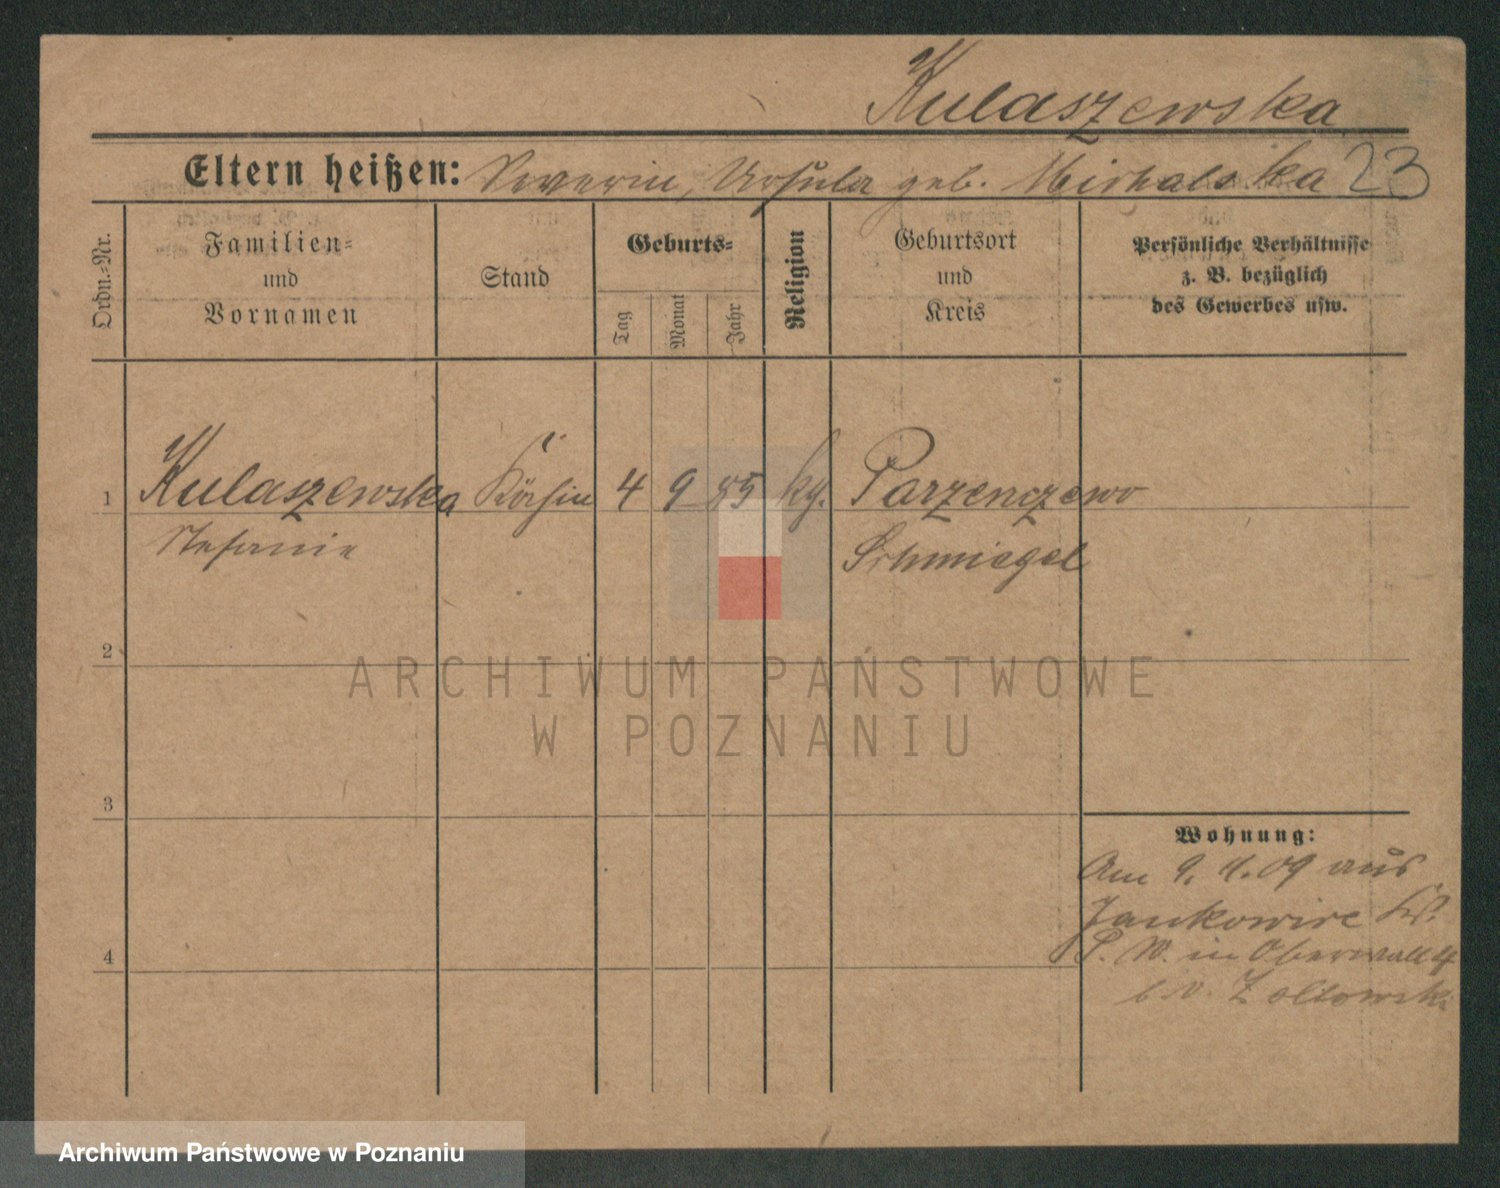 Kulaszewska
Eltern heißen: Severin, Ursula geb. Michalska 23
Ordn.=Nr.
Familien=
und
Vornamen
Stand
Geburts=
Tag
Monat
Jahr
Religion
Geburtsort
und
Kreis
Persönliche Verhältnisse
z. B. bezüglich
des Gewerbes usw.
1 Kulaszewska Köchin 4 9 85 kg. Parzenczewo
Stefanie Schmiegel
2
ARCHIWUM PAŃSTWOWE
W POZNANIU
3
Wohnung:
Am 9. 4. 09 aus
Jankowice
P. W. in Oberwall 4
b. v. Zoltowski
4
Archiwum Państwowe w Poznaniu